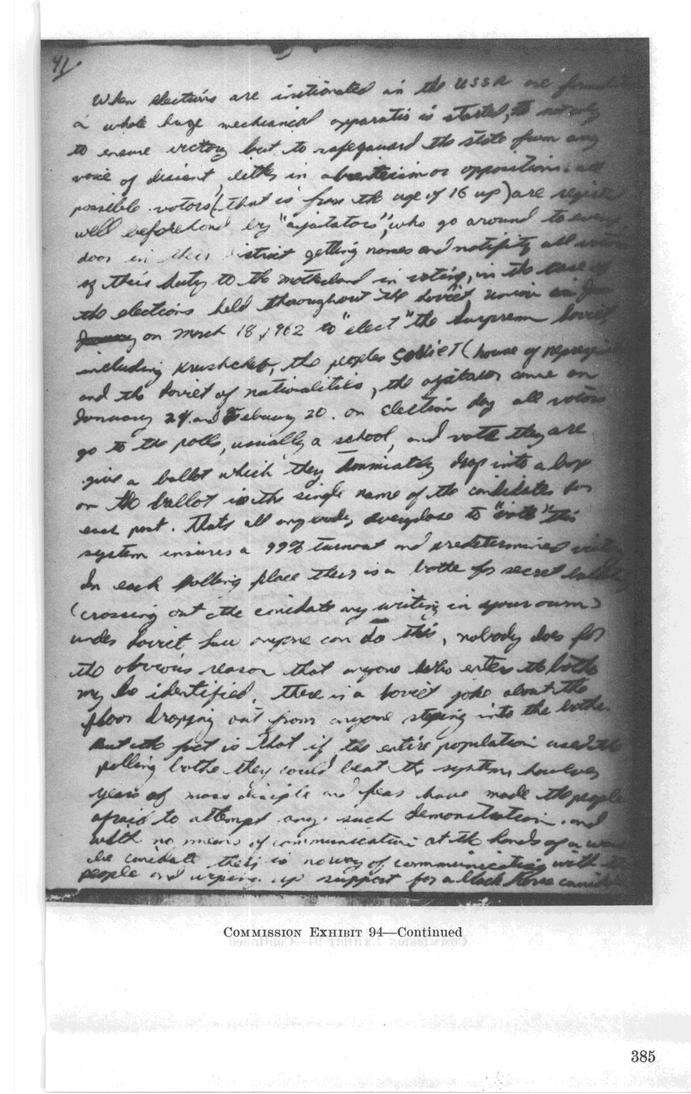 41.
When elections are insetionated in the USSR are
a whole huge mechanical apparatis is started, to not only
to ensure victory but to safeguard the state from any
voice of discent, either in abcenteeism or opposition. all
possible votors (that is from the age of 16 up) are
well beforehand by "agitators", who go around to every
door in their district getting names and notifing all votors
of their duty to the motherland in voting, in the case of
the elections held throughout the Soviet union
on March 18, 1962 to "elect" the Surprem Soviet
including Krushchef, the peoples Soviet (house of
and the Soviet of nationalities, the agitators came on
January 24 and Febuary 20. on election day all votors
go to the polls, usually a school, and vote they are
give a ballot which they drop into a box
on the ballot is the single name of the candidates for
each post. thats all anyone does to "vote" this
system insures a 99% turnout and predetermined
In each polling place ther is a bothe for secret
(crossing out the canidate any writing in your own)
under Soviet law anyone can do this, nobody does for
the obvious reason that anyone who enters the bothe
my be identified. there is a Soviet joke about the
floor dropping out from anyone steping into the bothe.
But the fact is that if the entire population used the
polling bothe they could beat the system, however
years of mass disciple and fear have made the people
afraid to attempt any such demonstration. and
with no means of communication at the hands of a
be canidate ther is no way of communicating with
people and up support for a black Horse
COMMISSION EXHIBIT 94—Continued
385